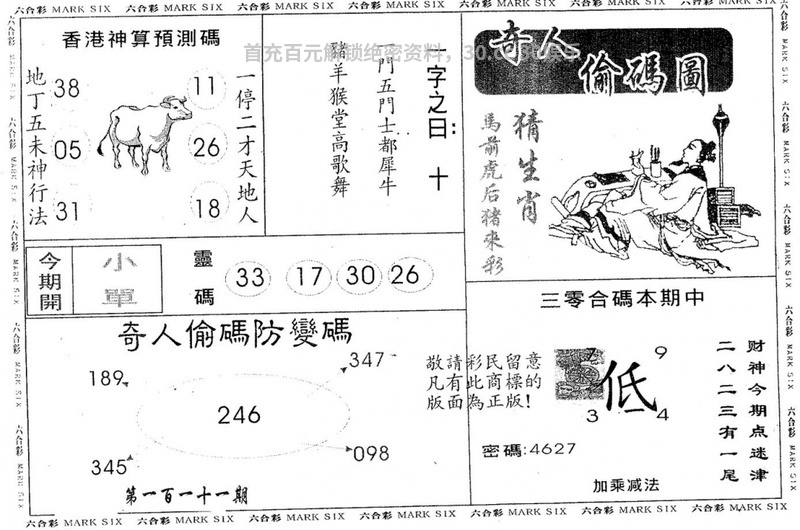 六合彩 MARK SIX 六合彩 MARK SIX 六合彩 MARK SIX 六合彩 MARK SIX 六合彩 MARK SIX 六合彩 MARK SIX 六合彩 MARK SIX
香港神算預測碼
地丁五未神行法
38
05
31
11
26
18
一停二才天地人
首充百元解锁绝密资料，30.
一字之曰: 十
一門五門士都犀牛
豬羊猴堂高歌舞
奇人偷碼圖
猜生肖
馬前虎后猪來彩
今期開
小單
靈碼
33 17 30 26
奇人偷碼防變碼
189
347
246
345
098
第一百一十一期
敬請彩民留意
凡有此商標的
版面為正版!
三零合碼本期中
7 9
低
3 4
密碼:4627
加乘减法
财神今期点迷津
二八二三有一尾
六合彩 MARK SIX 六合彩 MARK SIX 六合彩 MARK SIX 六合彩 MARK SIX 六合彩 MARK SIX 六合彩 MARK SIX 六合彩 MARK SIX